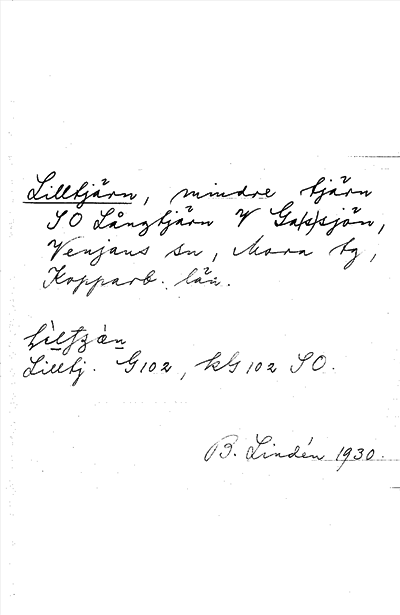 Lilltjärn, mindre tjärn
SO Långtjärn V Ga(s)sjön,
Venjans sn, Mora tg,
Kopparb. län.
Lilltj. G102, kG102 SO.
B. Lindén 1930.